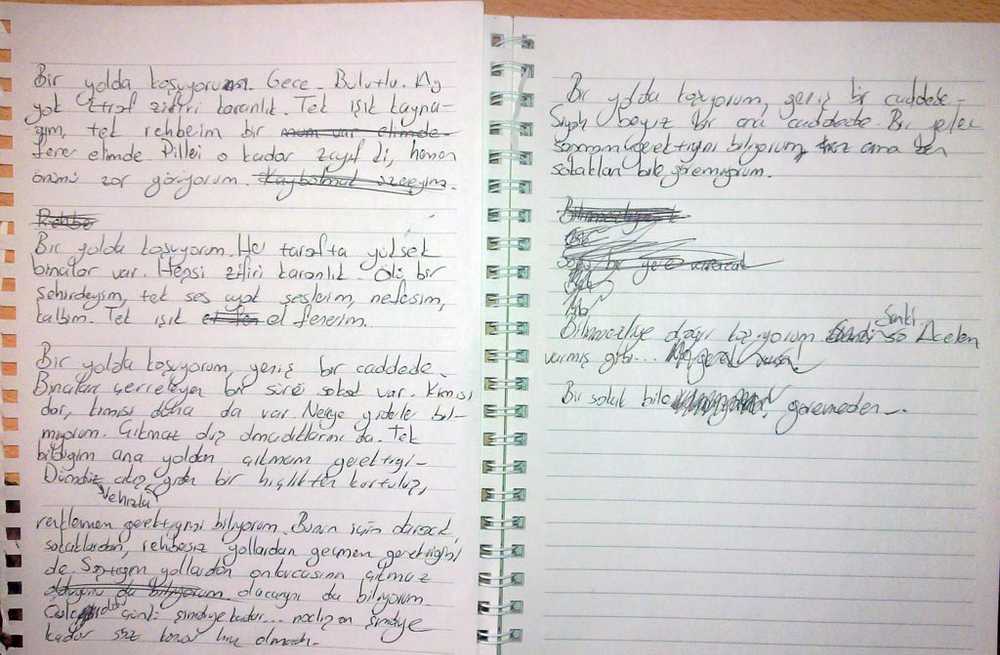 Bir yolda koşuyorum. Gece. Bulutlu. Ay
yok etraf zifiri karanlık. Tek ışık kayna-
ğım, tek rehberim bir mum var elimde
fener elimde. Pilleri o kadar zayıf ki, hemen
önümü zor görüyorum. Kaybolmak üzereyim.
Rehbe
Bir yolda koşuyorum. Her tarafta yüksek
binalar var. Hepsi zifiri karanlık. Ölü bir
şehirdeyim, tek ses ayak seslerim, nefesim,
kalbim. Tek ışık el fen el fenerim.
Bir yolda koşuyorum, geniş bir caddede.
Binaları çevreleyen bir sürü sokak var. Kimisi
dar, kimisi daha da var. Nereye giderler bil-
miyorum. Çıkmaz olup olmadıklarını da. Tek
bildiğim ana yoldan çıkmam gerektiği-
Dümdüz giden bir hiçlikten kurtuluş,
Ve hızlı
renklemen gerektiğini biliyorum. Bunun için daracık
sokaklardan, rehbersiz yollardan geçmem gerektiğini
de. Seçtiğim yollardan onlarcasının çıkmaz
olduğunu da biliyorum olacağını da biliyorum.
şimdiye kadar... şimdiye
kadar
Bir yolda koşuyorum, geniş bir caddede-
Siyah beyaz bir ana caddede. Bir
gerektiğini biliyorum, ama ben
sokakları bile göremiyorum.
bir yere varacak
Bilinmezliğe doğru koşuyorum Sanki
Acelem
varmış gibi...
Bir sokak bile göremeden...